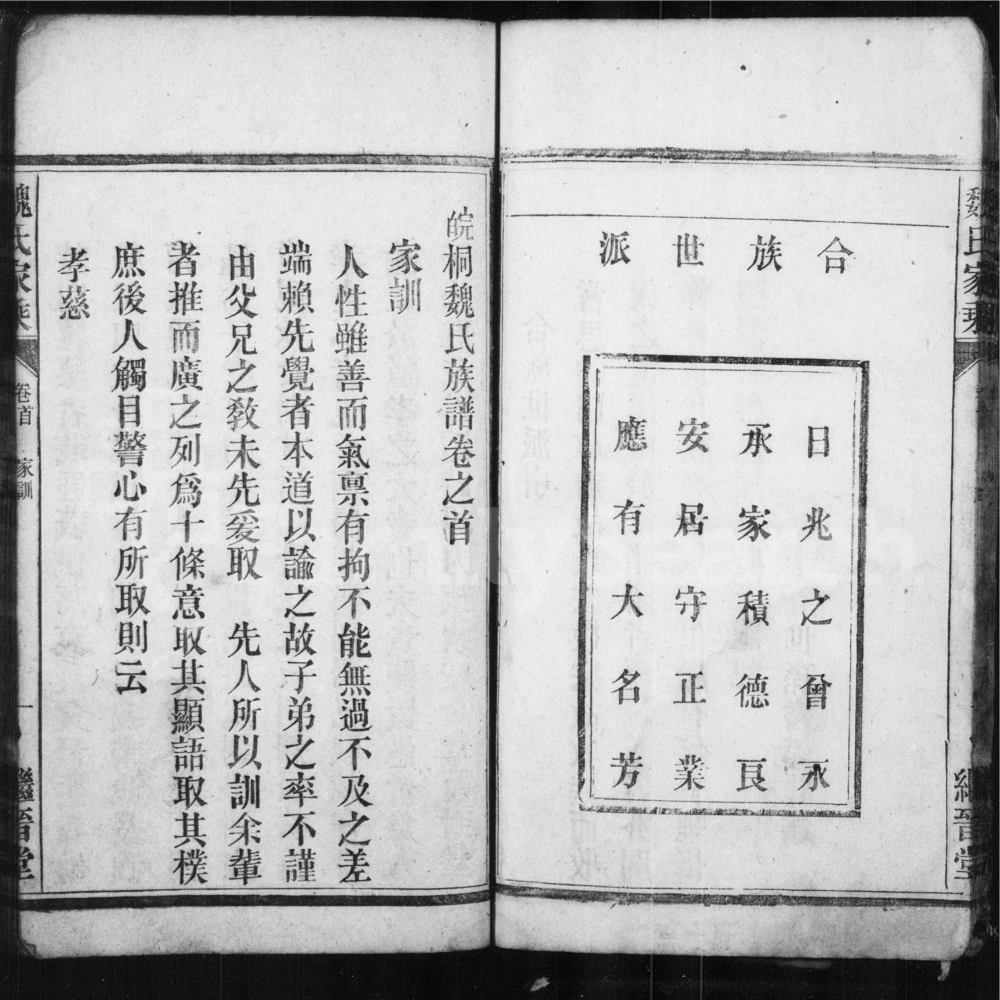 魏氏家乘
繼晉堂
合族世派
日兆之會永
承家積德良
安居守正業
應有大名芳
皖桐魏氏族譜卷之首
家訓
人性雖善而氣禀有拘不能無過不及之差
端賴先覺者本道以諭之故子弟之率不謹
由父兄之教未先爰取　先人所以訓余輩
者推而廣之列為十條意取其顯語取其樸
庶後人觸目警心有所取則云
孝慈
魏氏家乘
卷首
家訓
一
繼晉堂